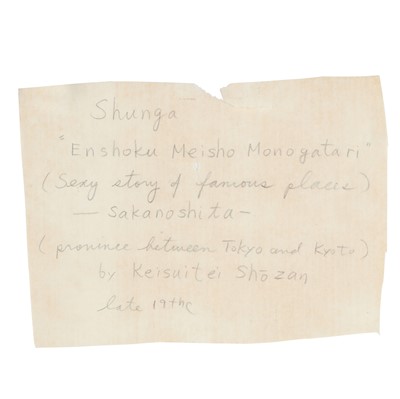 Shunga
"Enshoku Meisho Monogatari"
(Sexy story of famous places)
— Sakanoshita —
(province between Tokyo and Kyoto)
by Keisuitei Shōzan
late 19thc